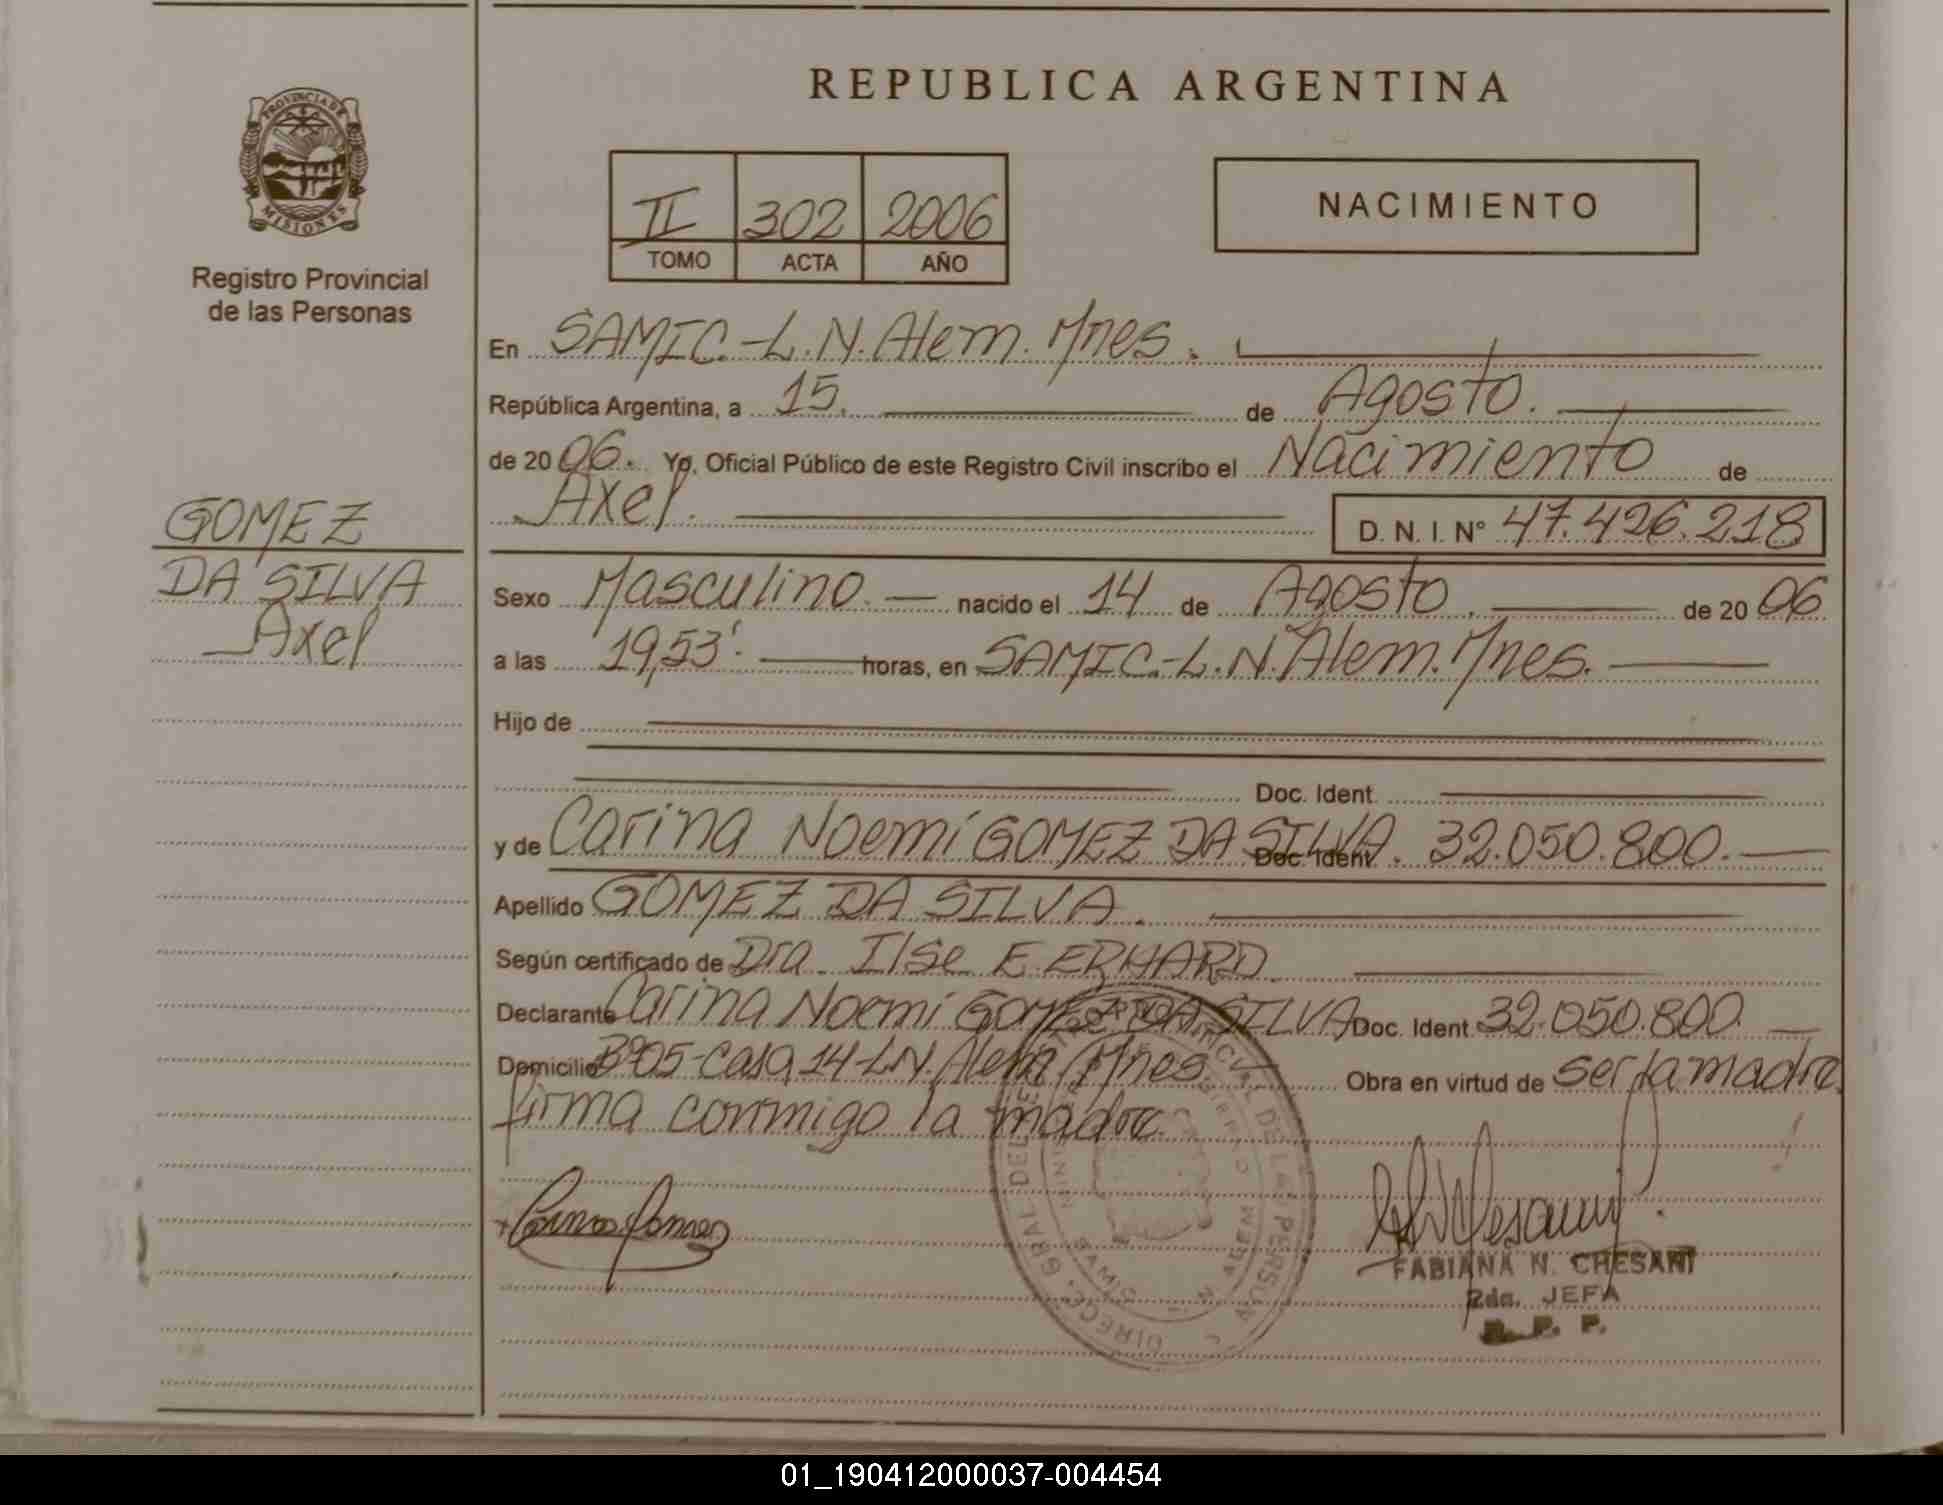 REPUBLICA ARGENTINA
PROVINCIA DE
MISIONES
Registro Provincial
de las Personas
II 302 2006
TOMO ACTA AÑO
NACIMIENTO
En SAMIC.-L.N.Alem.Mnes.
República Argentina, a 15. de Agosto.
de 2006. Yo, Oficial Público de este Registro Civil inscribo el Nacimiento de
Axel. D. N. I. Nº 47.426.218
GOMEZ
DA SILVA
Axel
Sexo Masculino. nacido el 14 de Agosto. de 2006
a las 19,53'. horas, en SAMIC.-L.N.Alem.Mnes.
Hijo de
Doc. Ident.
y de Carina Noemí GOMEZ DA SILVA. Doc. Ident. 32.050.800.
Apellido GOMEZ DA SILVA.
Según certificado de Dra. Ilse E. ERHARD.
Declarante Carina Noemí GOMEZ DA SILVA Doc. Ident 32.050.800.
Domicilio Bº05-Casa 14-L.N.Alem. Mnes. Obra en virtud de ser la madre.
firma conmigo la madre.
Carina Gomez
FABIANA N. CHESANI
2da. JEFA
R. P. P.
01_190412000037-004454